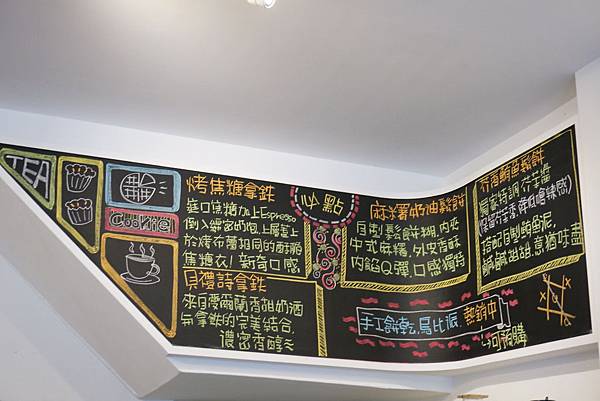 TEA
Cookie!
烤焦糖拿鉄
進口焦糖加上Espresso
倒入綿密奶泡,上層蓋上
於烤布蕾相同的酥脆
焦糖衣!新奇口感
貝禮詩拿鉄
來自愛爾蘭香甜奶酒
與拿鉄的完美結合,
濃密香醇
点點
麻糬奶油鬆餅
自製鬆餅糊,內夾
中式麻糬,外皮香酥
內餡Q彈,口感獨特
手工餅乾,烏比派,熱銷中
可預購
芥酱鮪魚鬆餅
獨家特調芥末醬
(保留芥末香,降低嗆辣感)
搭配自製鮪魚泥,
鹹鹹甜甜,意猶味盡